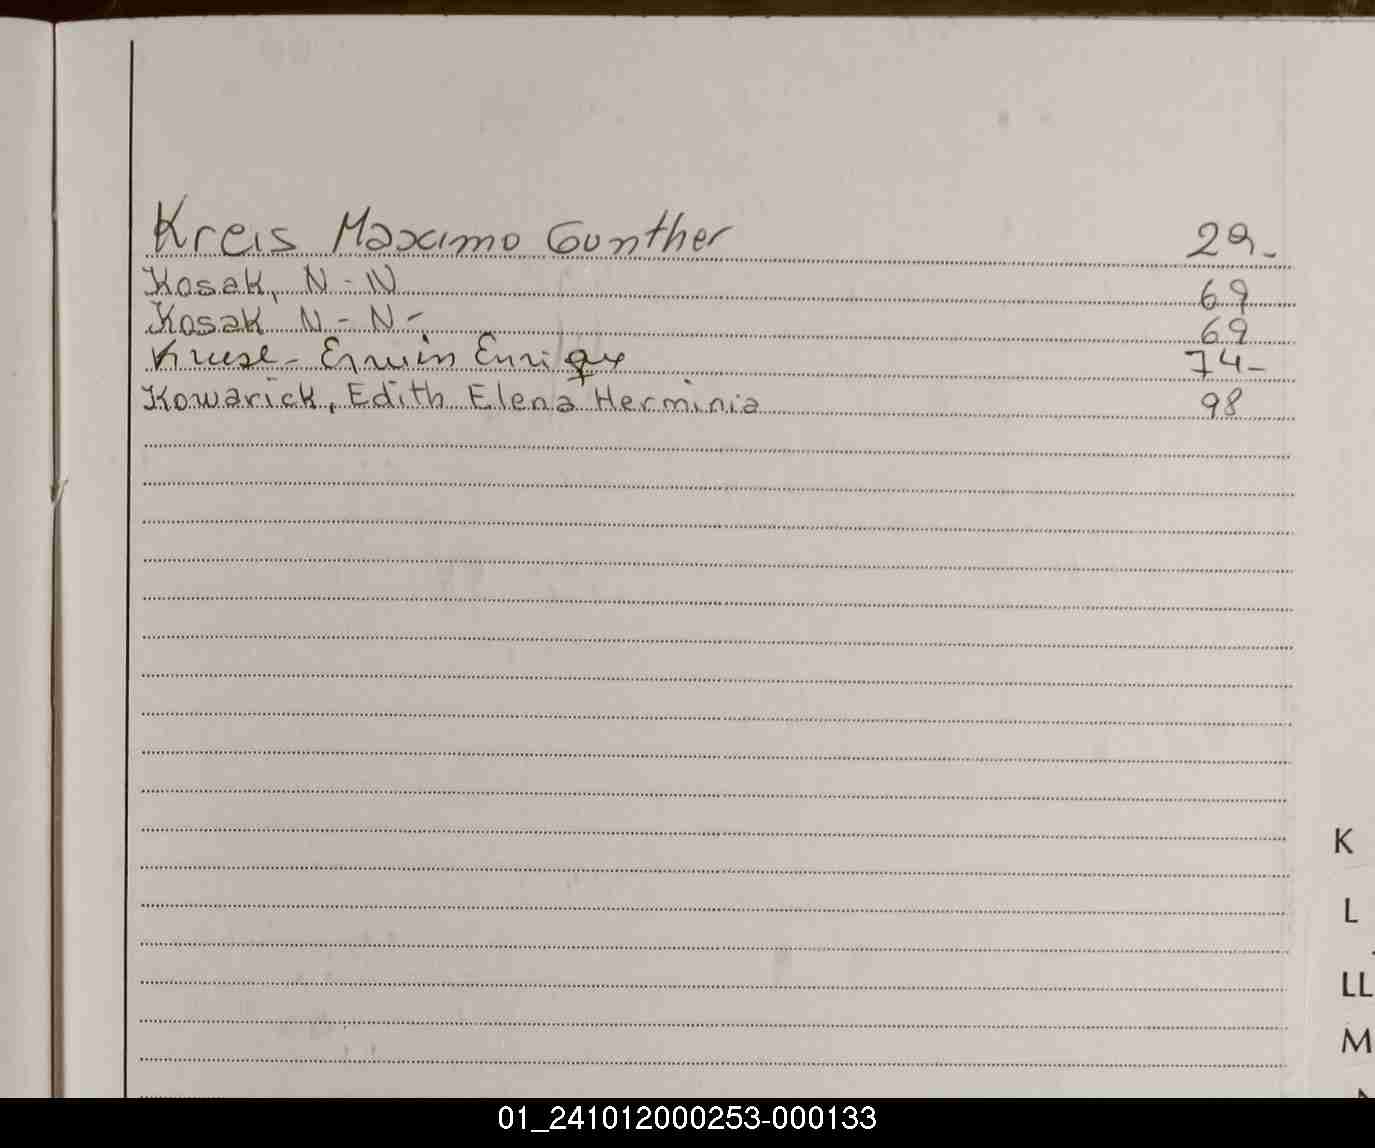 Kreis Maximo Gunther 29-
Kosak, N-N 69
Kosak N-N- 69
Kruse- Erwin Enrique 74-
Kowarick, Edith Elena Herminia 98
K
L
LL
M
01_241012000253-000133